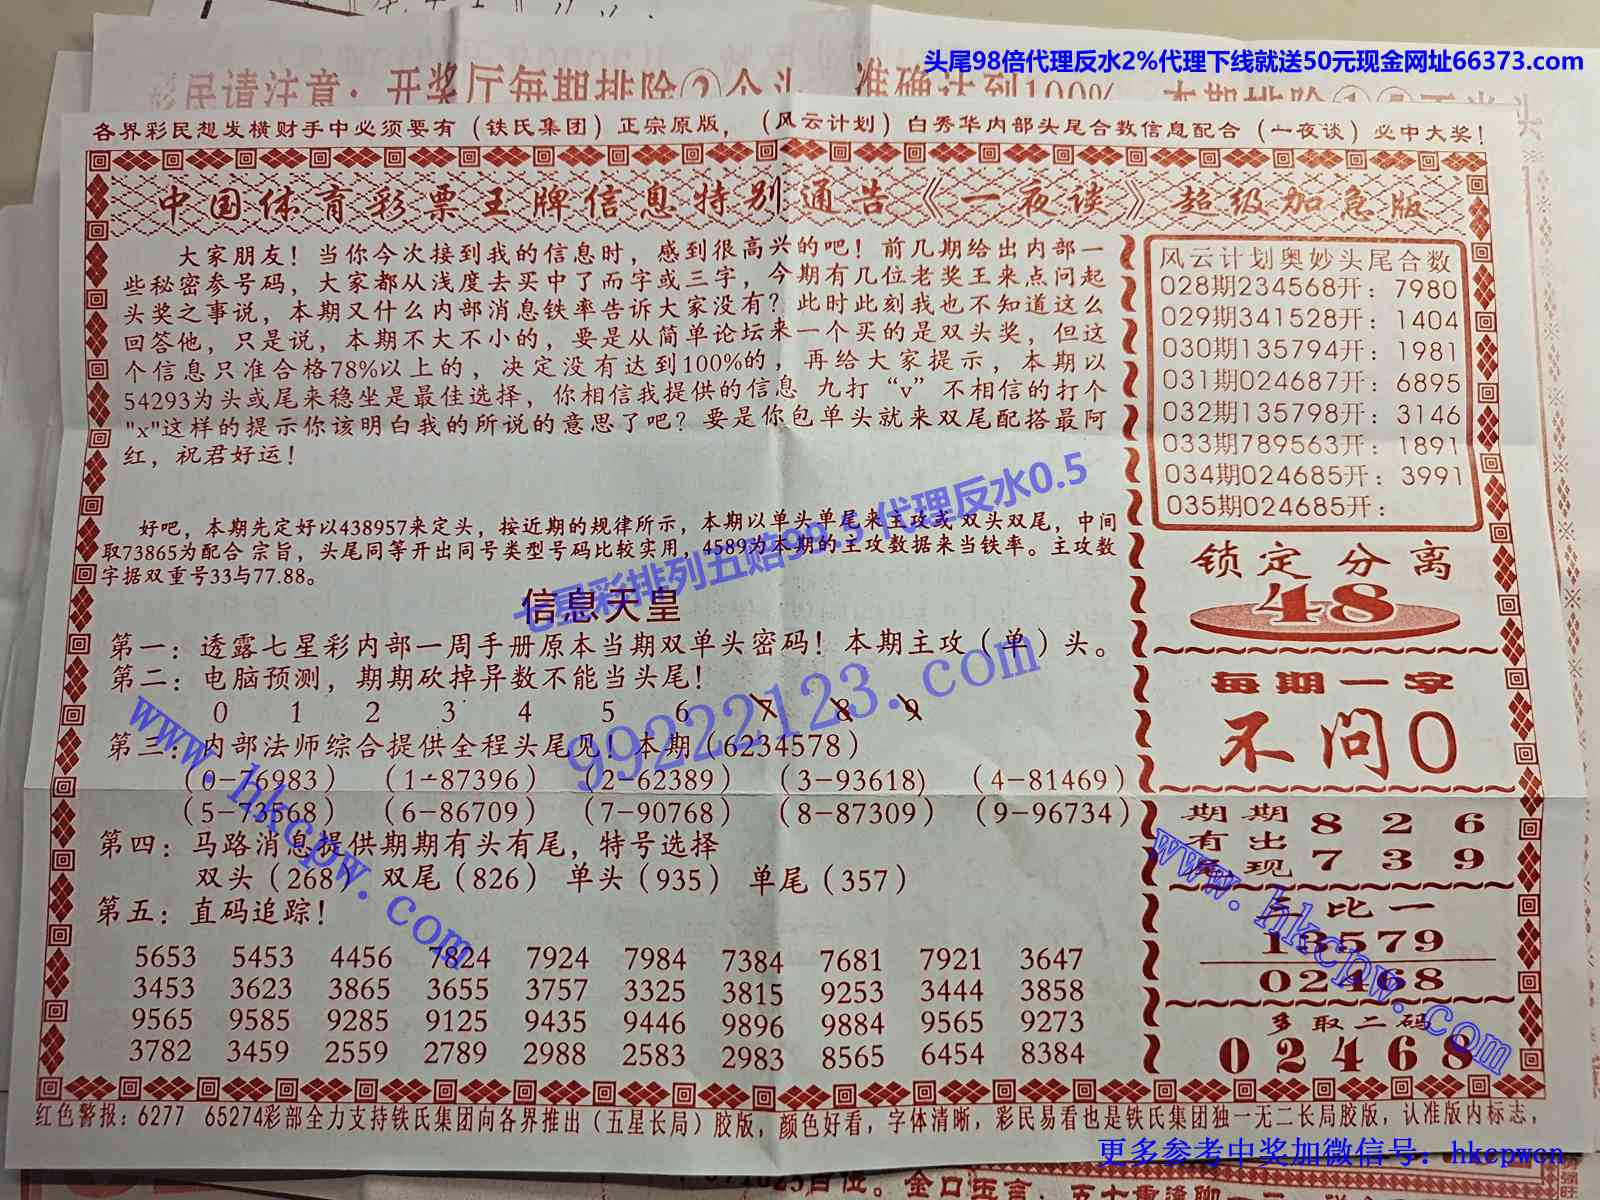 头尾98倍代理反水2%代理下线就送50元现金网址66373.com
彩民请注意：开奖厅每期排除②个头 准确达到100%
各界彩民想发横财手中必须要有（铁氏集团）正宗原版，（风云计划）白秀华内部头尾合数信息配合（一夜谈）必中大奖！
中国体育彩票王牌信息特别通告《一夜谈》超级加急版
大家朋友！当你今次接到我的信息时，感到很高兴的吧！前几期给出内部一
些秘密参号码，大家都从浅度去买中了而字或三字，今期有几位老奖王来点问起
头奖之事说，本期又什么内部消息铁率告诉大家没有？此时此刻我也不知道这么
回答他，只是说，本期不大不小的，要是从简单论坛来一个买的是双头奖，但这
个信息只准合格78%以上的，决定没有达到100%的，再给大家提示，本期以
54293为头或尾来稳坐是最佳选择，你相信我提供的信息 九打“v”不相信的打个
"x"这样的提示你该明白我的所说的意思了吧？要是你包单头就来双尾配搭最阿
红，祝君好运！
好吧，本期先定好以438957来定头，按近期的规律所示，本期以单头单尾来主攻或 双头双尾，中间
取73865为配合 宗旨，头尾同等开出同号类型号码比较实用，4589为本期的主攻数据来当铁率。主攻数
字据双重号33与77.88。
七星彩排列五赔98.5 代理反水0.5
信息天皇
第一：透露七星彩内部一周手册原本当期双单头密码！本期主攻（单）头。
第二：电脑预测，期期砍掉异数不能当头尾！
0 1 2 3 4 5 6 7 8 9
第三：内部法师综合提供全程头尾见！本期（6234578）
（0-76983） （1-87396） （2-62389） （3-93618） （4-81469）
（5-73568） （6-86709） （7-90768） （8-87309） （9-96734）
第四：马路消息提供期期有头有尾，特号选择
双头（268） 双尾（826） 单头（935） 单尾（357）
第五：直码追踪！
5653 5453 4456 7824 7924 7984 7384 7681 7921 3647
3453 3623 3865 3655 3757 3325 3815 9253 3444 3858
9565 9585 9285 9125 9435 9446 9896 9884 9565 9273
3782 3459 2559 2789 2988 2583 2983 8565 6454 8384
99222123.com
www.hkcpw.com
风云计划奥妙头尾合数
028期234568开：7980
029期341528开：1404
030期135794开：1981
031期024687开：6895
032期135798开：3146
033期789563开：1891
034期024685开：3991
035期024685开：
锁定分离
48
每期一字
不问0
期期 8 2 6
有出
尾现 7 3 9
三比一
13579
02468
多取二码
02468
www.hkcpw.com
红色警报：6277 65274彩部全力支持铁氏集团向各界推出（五星长局）胶版，颜色好看，字体清晰，彩民易看也是铁氏集团独一无二长局胶版，认准版内标志，
更多参考中奖加微信号：hkcpwcn